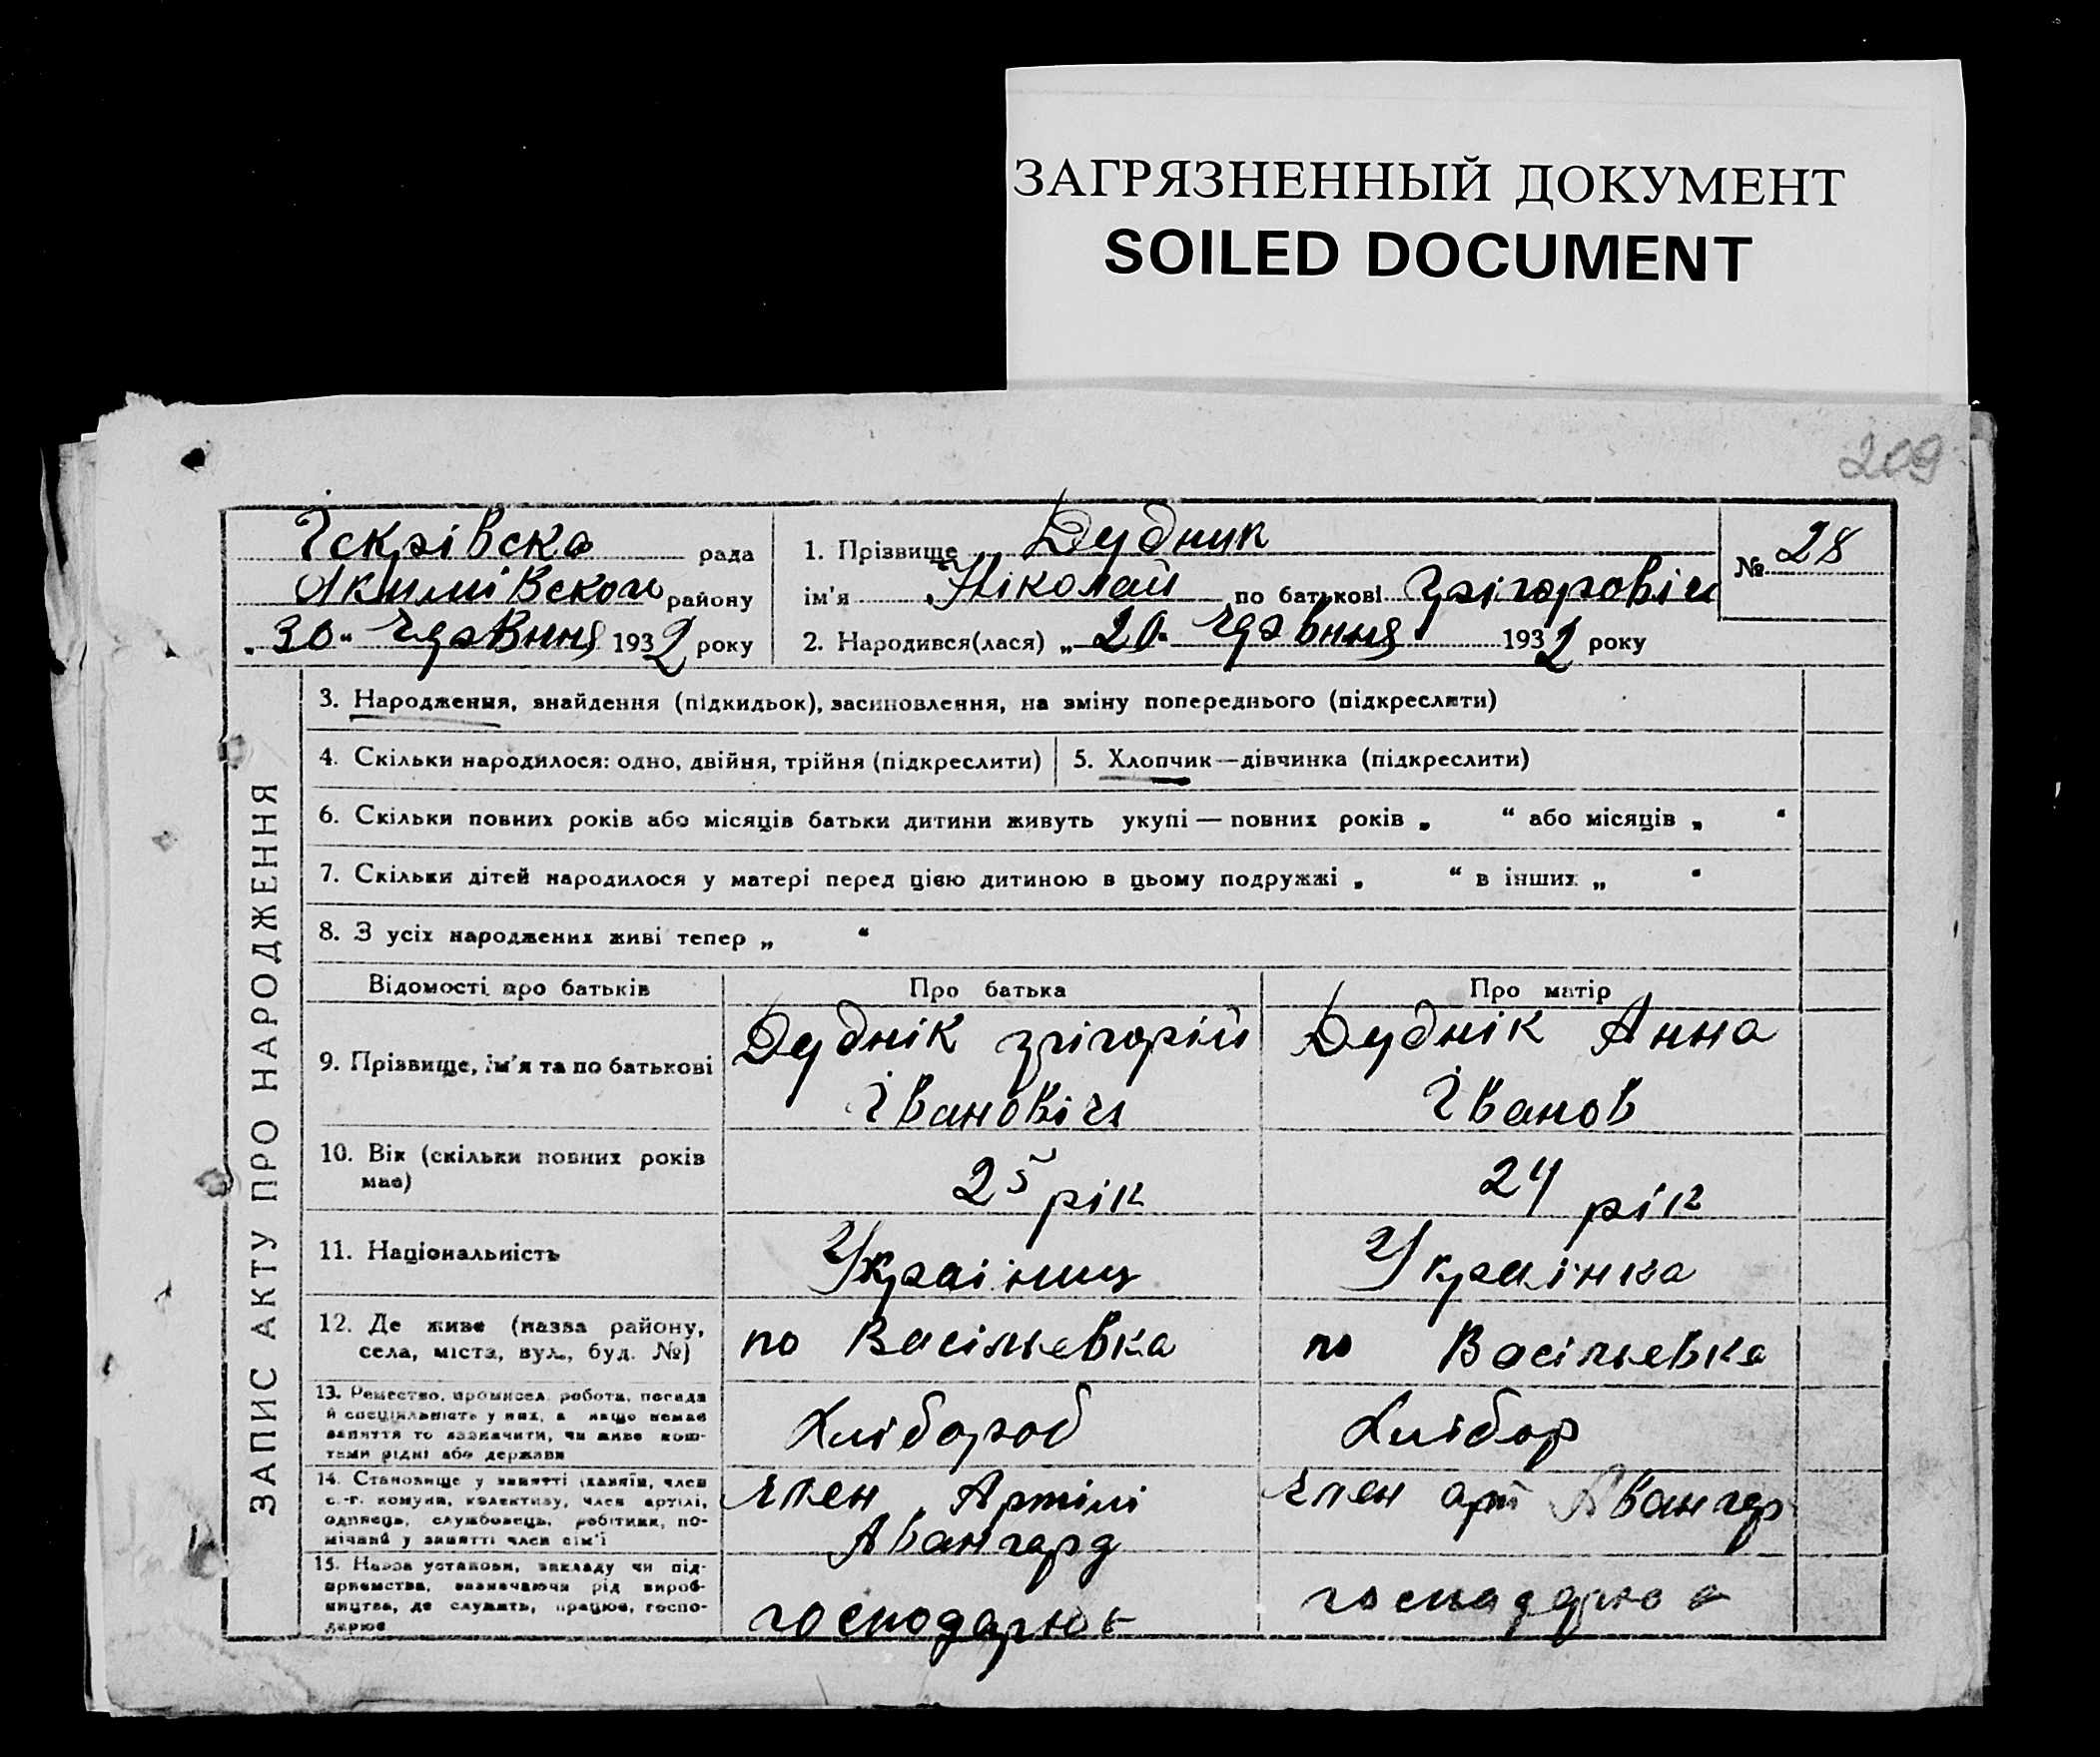 ЗАГРЯЗНЕННЫЙ ДОКУМЕНТ
SOILED DOCUMENT
209
Іскрівска рада
Якимівского району
„30“ Червния 1932 року
1. Прізвище Дудник
ім'я Ніколай по батькові Грігоровіч
2. Народився(лася) „20“ Червния 1932 року
№ 28
ЗАПИС АКТУ ПРО НАРОДЖЕННЯ
3. Народження, знайдення (підкидьок), засиновлення, на зміну попереднього (підкреслити)
4. Скільки народилося: одно, двійня, трійня (підкреслити)
5. Хлопчик—дівчинка (підкреслити)
6. Скільки повних років або місяців батьки дитини живуть укупі — повних років „ “ або місяців „ “
7. Скільки дітей народилося у матері перед цією дитиною в цьому подружжі „ “ в інших „ “
8. З усіх народжених живі тепер „ “
Відомості про батьків
Про батька
Про матір
9. Прізвище, ім'я та по батькові
Дуднік Грігорій
Івановіч
Дуднік Анна
Іванов
10. Вік (скільки повних років
має)
25 рік
24 рік
11. Національність
Украіниц
Украінка
12. Де живе (назва району,
села, міста, вул., буд. №)
по Васільевка
по Васільевка
13. Ремество, промисел, робота, посада
й спеціяльність у них, а якщо немає
заняття то зазначити, чи живе кош-
тами рідні або держави
Хлібороб
Хлібор
14. Становище у занятті (хазяїн, член
с.-г. комуни, колективу, член артілі,
одинець, службовець, робітник, по-
мічний у занятті член сім'ї
член Артілі
Авангард
член арт Авангар
15. Назва установи, закладу чи під-
приємства, зазначаючи рід вироб-
ництва, де служить, працює, госпо-
дарює
господарює
господарює